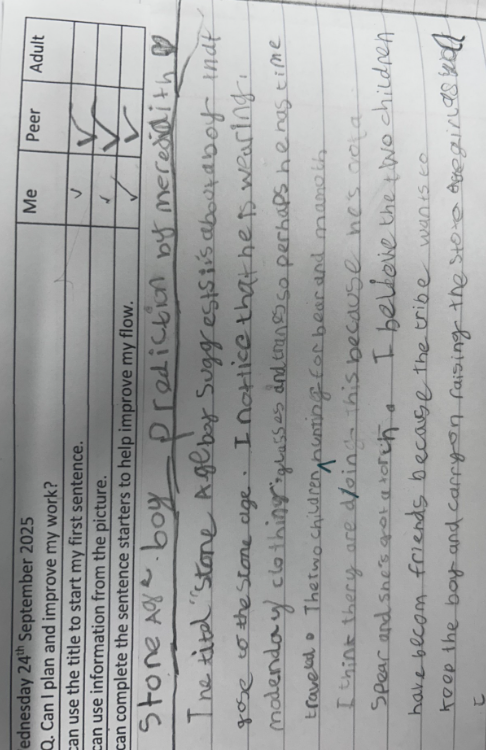 ednesday 24th September 2025
Q. Can I plan and improve my work?
Me Peer Adult
can use the title to start my first sentence. ✓ ✓
can use information from the picture. ✓ ✓
can complete the sentence starters to help improve my flow. ✓ ✓
Stone Age boy prediction by meredith
The titel "stone Age boy suggests it's about a boy that
gose to the stone age. I notice that he is wearing
modenday clothing, glasses and so perhaps he has time
traveled. The two children hunting for bear and mamoth
I think they are doing this because he's got a
spear and she's got a torch. I believe the two children
have becom friends because the tribe wants to
keep the boy and carry on raising the